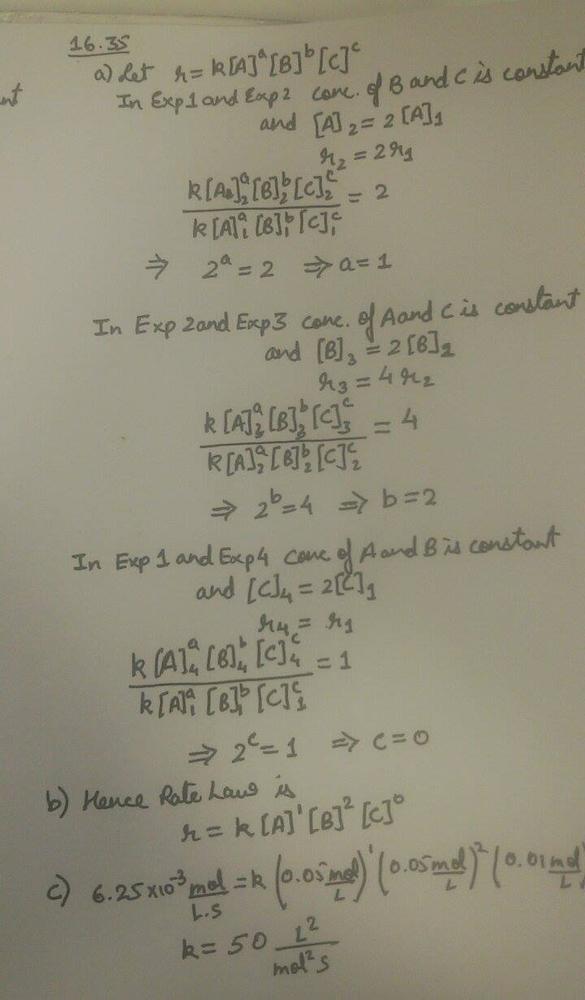 16.35
nt
a) Let r = k[A]^a[B]^b[C]^c
In Exp1 and Exp2 conc. of B and C is constant
and [A]₂ = 2[A]₁
r₂ = 2r₁
k[A]₂^a[B]₂^b[C]₂^c = 2
k[A]₁^a[B]₁^b[C]₁^c
⇒ 2^a = 2 ⇒ a = 1
In Exp 2 and Exp3 conc. of A and C is constant
and [B]₃ = 2[B]₂
r₃ = 4r₂
k[A]₃^a[B]₃^b[C]₃^c = 4
k[A]₂^a[B]₂^b[C]₂^c
⇒ 2^b = 4 ⇒ b = 2
In Exp 1 and Exp4 conc of A and B is constant
and [C]₄ = 2[C]₁
r₄ = r₁
k[A]₄^a[B]₄^b[C]₄^c = 1
k[A]₁^a[B]₁^b[C]₁^c
⇒ 2^c = 1 ⇒ c = 0
b) Hence Rate Law is
r = k[A]^1[B]^2[C]^0
c) 6.25×10^-3 mol/L.S = k (0.05 mol/L)^1 (0.05 mol/L)^2 (0.01 mol/L)
k = 50 L²/mol²s